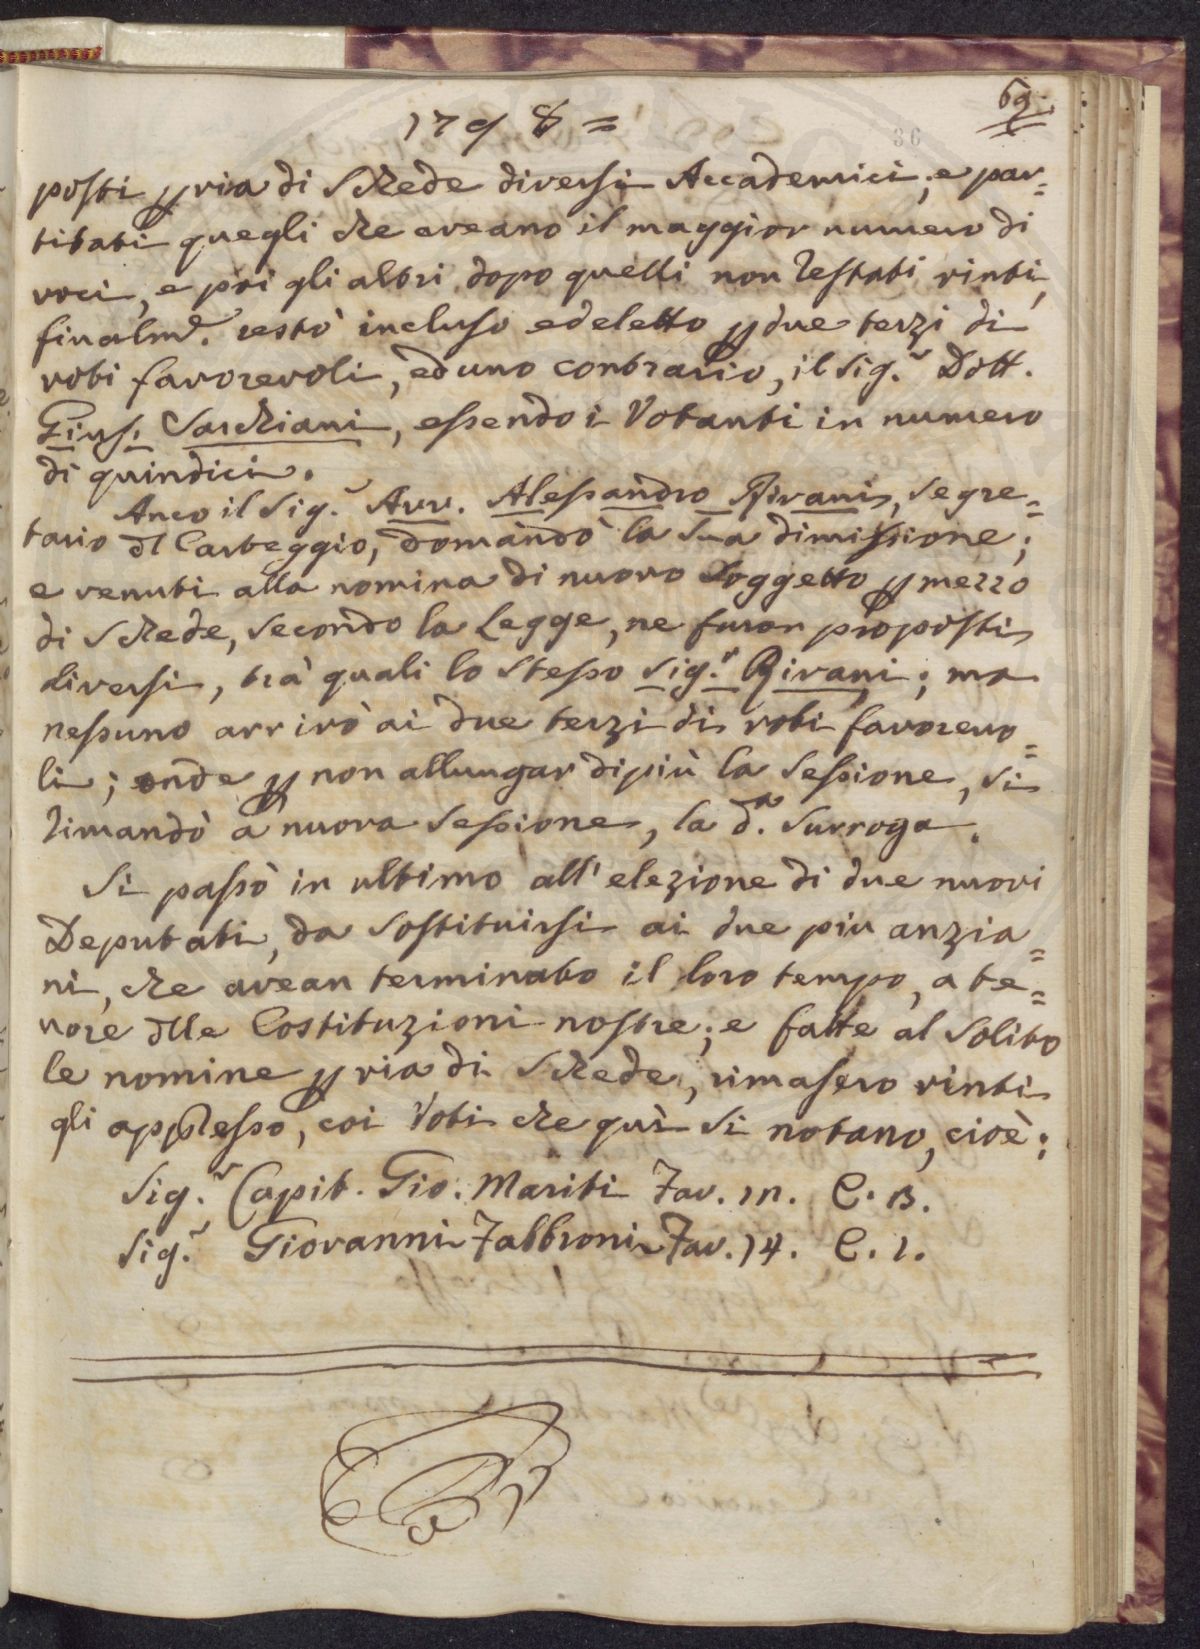 69.
36
1798 =
posti p via di Schede diversi Accademici; e par=
titati quegli che aveano il maggior numero di
voci, e poi gli altri dopo quelli non restati vinti,
finalm.e restò incluso ed eletto p due terzi di
voti favorevoli, ed uno contrario, il Sig.r Dott.
Gius. Sarchiani, essendo i Votanti in numero
di quindici.
Anco il Sig.r Avv. Alessandro Rivani, Segre=
tario dl Carteggio, domandò la sua dimissione;
e venuti alla nomina di nuovo Soggetto p mezzo
di Schede, secondo la Legge, ne furon proposti
diversi, trà quali lo stesso Sig.r Rivani; ma
nessuno arrivò ai due terzi di voti favorevo=
li; onde p non allungar dipiù la Sessione, si
rimandò a nuova Sessione, la d.a Surroga.
Si passò in ultimo all'elezione di due nuovi
Deputati, da sostituirsi ai due piu anzia=
ni, che avean terminato il loro tempo, a te=
nore dlle Costituzioni nostre; e fatte al solito
le nomine p via di Schede, rimasero vinti
gli appresso, coi Voti che quì si notano, cioè:
Sig.r Capit. Gio. Mariti Fav. C.
Sig.r Giovanni Fabbroni Fav. 14. C. 1.